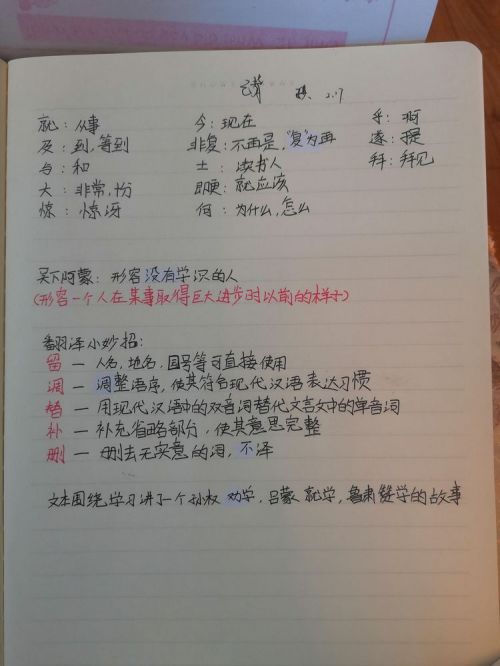 2.17
就：从事 今：现在 乎：啊
及：到，等到 非复：不再是，"复"为再 遂：于是
与：和 士：读书人 拜：拜见
大：非常，十分 即更：就应该
惊：惊讶 何：为什么，怎么
吴下阿蒙：形容没有学识的人
(形容一个人在某事取得巨大进步时以前的样子)
翻译小妙招：
留 — 人名，地名，国号等可直接使用
调 — 调整语序，使其符合现代汉语表达习惯
替 — 用现代汉语中的双音词替代文言文中的单音词
补 — 补充省略部分，使其意思完整
删 — 删去无实意的词，不译
文本围绕学习讲了一个孙权劝学，吕蒙就学，鲁肃赞学的故事